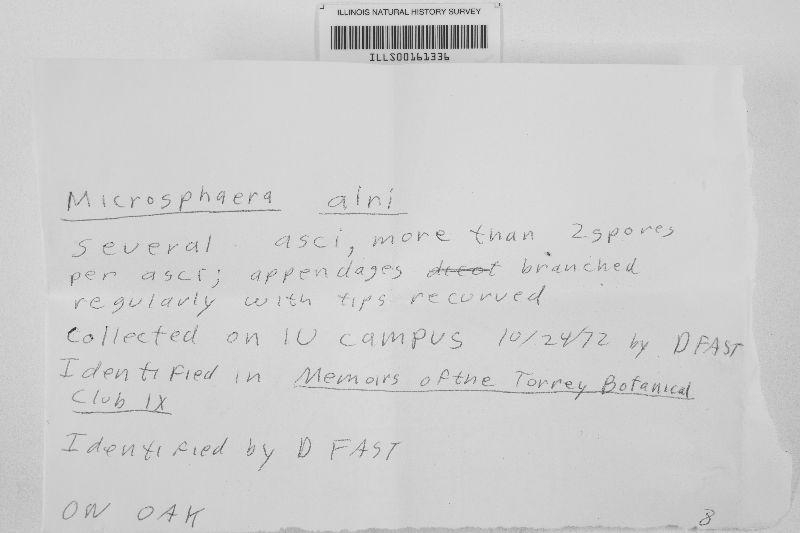 ILLINOIS NATURAL HISTORY SURVEY
ILLS00161336
Microsphaera alni
several asci, more than 2 spores
per asci; appendages branched
regularly with tips recurved
Collected on IU campus 10/24/72 by D FAST
Identified in Memoirs of the Torrey Botanical
Club IX
Identified by D FAST
ON OAK
8